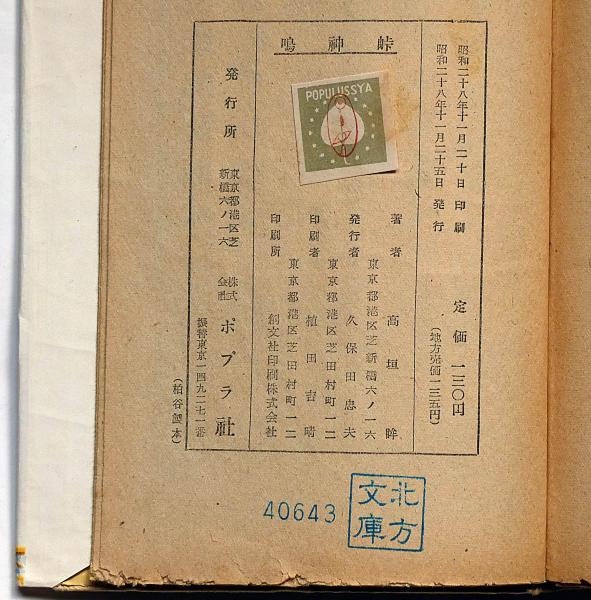 昭和二十八年十一月二十日 印刷
昭和二十八年十一月二十五日 発行
定価 一三〇円
(地方売価一三五円)
鳴神峠
POPULUSSYA
著者 高垣眸
東京都港区芝新橋六ノ一六
発行者 久保田忠夫
東京都港区芝田村町一ノ二
印刷者 植田吉晴
東京都港区芝田村町一ノ二
印刷所 創文社印刷株式会社
発行所
東京都港区芝
新橋六ノ一六
株式
会社 ポプラ社
振替東京一四九二七一番
(柏谷製本)
40643
北方
文庫